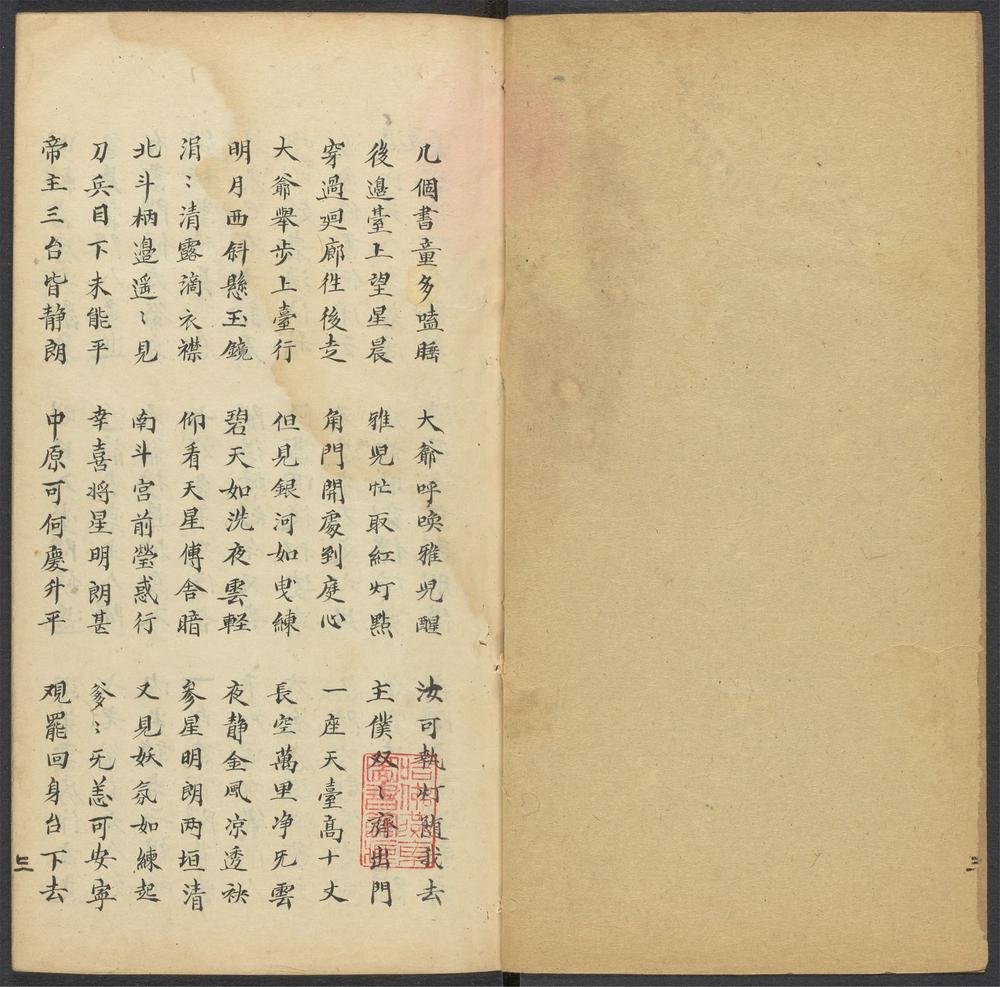 几個書童多嗑睡 大爺呼喚雅児醒 汝可執灯随我去
後邉臺上望星晨 雅児忙取紅灯點 主僕双〻齊出門
穿過廻廊徃後走 角門開處到庭心 一座天臺髙十丈
大爺舉步上臺行 但見銀河如曳練 長空萬里净旡雲
明月西斜懸玉鏡 碧天如洗夜雲軽 夜静金風凉透袂
涓〻清露滴衣襟 仰看天星傅舍暗 參星明朗两垣清
北斗柄邉遥〻見 南斗宫前瑩惑行 又見妖氛如練起
刀兵目下未能平 幸喜将星明朗甚 爹〻旡恙可安寜
帝主三台皆静朗 中原可何慶升平 观罷回身台下去